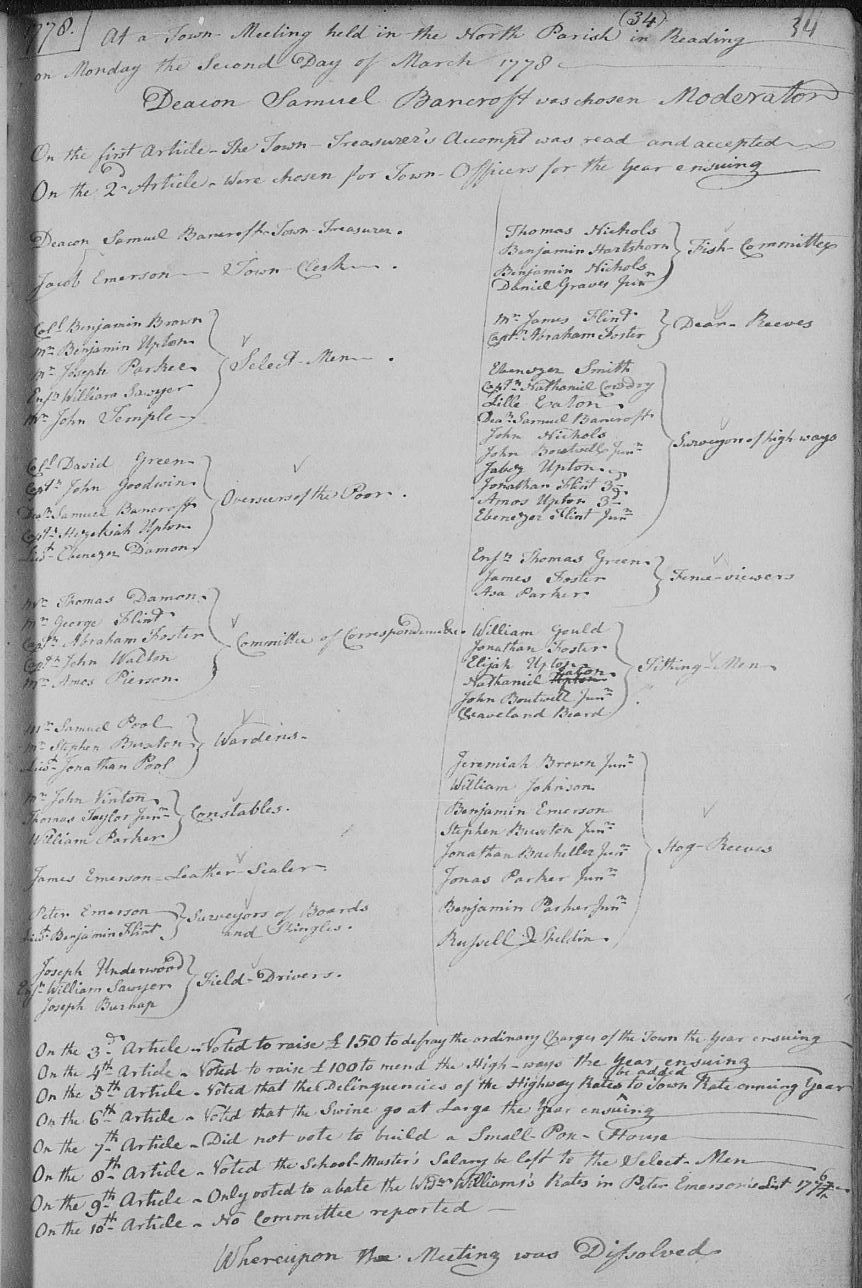 1778.
(34)
34
At a Town-Meeting held in the North Parish in Reading
on Monday the Second Day of March 1778
Deacon Samuel Bancroft was chosen Moderator
On the first Article - The Town-Treasurer's Accompt was read and accepted
On the 2d Article - Were chosen for Town-Officers for the Year ensuing
Deacon Samuel Bancroft - Town-Treasurer.
Jacob Emerson - Town-Clerk.
Coll. Benjamin Brown
Mr. Benjamin Upton
Mr. Joseph Parker
Ensn. William Sawyer
Mr. John Temple
Select-Men.
Capt. David Green
Capt. John Goodwin
Dean. Samuel Bancroft
Captn. Hezekiah Upton
Lieut. Ebenezer Damon
Overseers of the Poor.
Mr. Thomas Damon
Mr. George Flint
Captn. Abraham Foster
Captn. John Walton
Mr. Amos Pierson
Committee of Correspondence &c.
Mr. Samuel Pool
Mr. Stephen Buxton
Lieut. Jonathan Pool
Wardens.
Mr. John Vinton
Thomas Taylor Junr.
William Parker
Constables.
James Emerson - Leather-Sealer
Peter Emerson
Lieut. Benjamin Flint
Surveyors of Boards
and Shingles.
Joseph Underwood
Ensn. William Sawyer
Joseph Burnap
Field-Drivers.
Thomas Nichols
Benjamin Hartshorn
Benjamin Nichols
Daniel Graves Junr.
Fish-Committee
Mr. James Flint
Captn. Abraham Foster
Dear-Reeves
Ebenezer Smith
Captn. Nathaniel Cowdry
Lille Eaton
Dean. Samuel Bancroft
John Nichols
John Boutwell Junr.
Jabez Upton
Jonathan Flint 3d.
Amos Upton 3d.
Ebenezer Flint Junr.
Surveyors of high-ways
Ensn. Thomas Green
James Foster
Asa Parker
Fence-viewers
William Gould
Jonathan Foster
Elijah Upton
Nathaniel Upton Eaton
John Boutwell Junr.
Cleaveland Beard
Tithing-Men
Jeremiah Brown Junr.
William Johnson
Benjamin Emerson
Stephen Buxton Junr.
Jonathan Bacheller Junr.
Jonas Parker Junr.
Benjamin Parker Junr.
Russell Sheldin
Hog-Reeves
On the 3d Article - Voted to raise £150 to defray the ordinary Charges of the Town the Year ensuing
On the 4th Article - Voted to raise £100 to mend the High-ways the Year ensuing
On the 5th Article - Voted that the Delinquencies of the Highway Rates be added to Town Rate ennuing Year
On the 6th Article - Voted that the Swine go at Large the Year ensuing
On the 7th Article - Did not vote to build a Small-Pox-House
On the 8th Article - Voted the School-Master's Salary be left to the Select-Men
On the 9th Article - Only voted to abate the Widw. Williams's Rates in Peter Emerson's List 1776
On the 10th Article - No Committee reported
Whereupon the Meeting was Dissolved